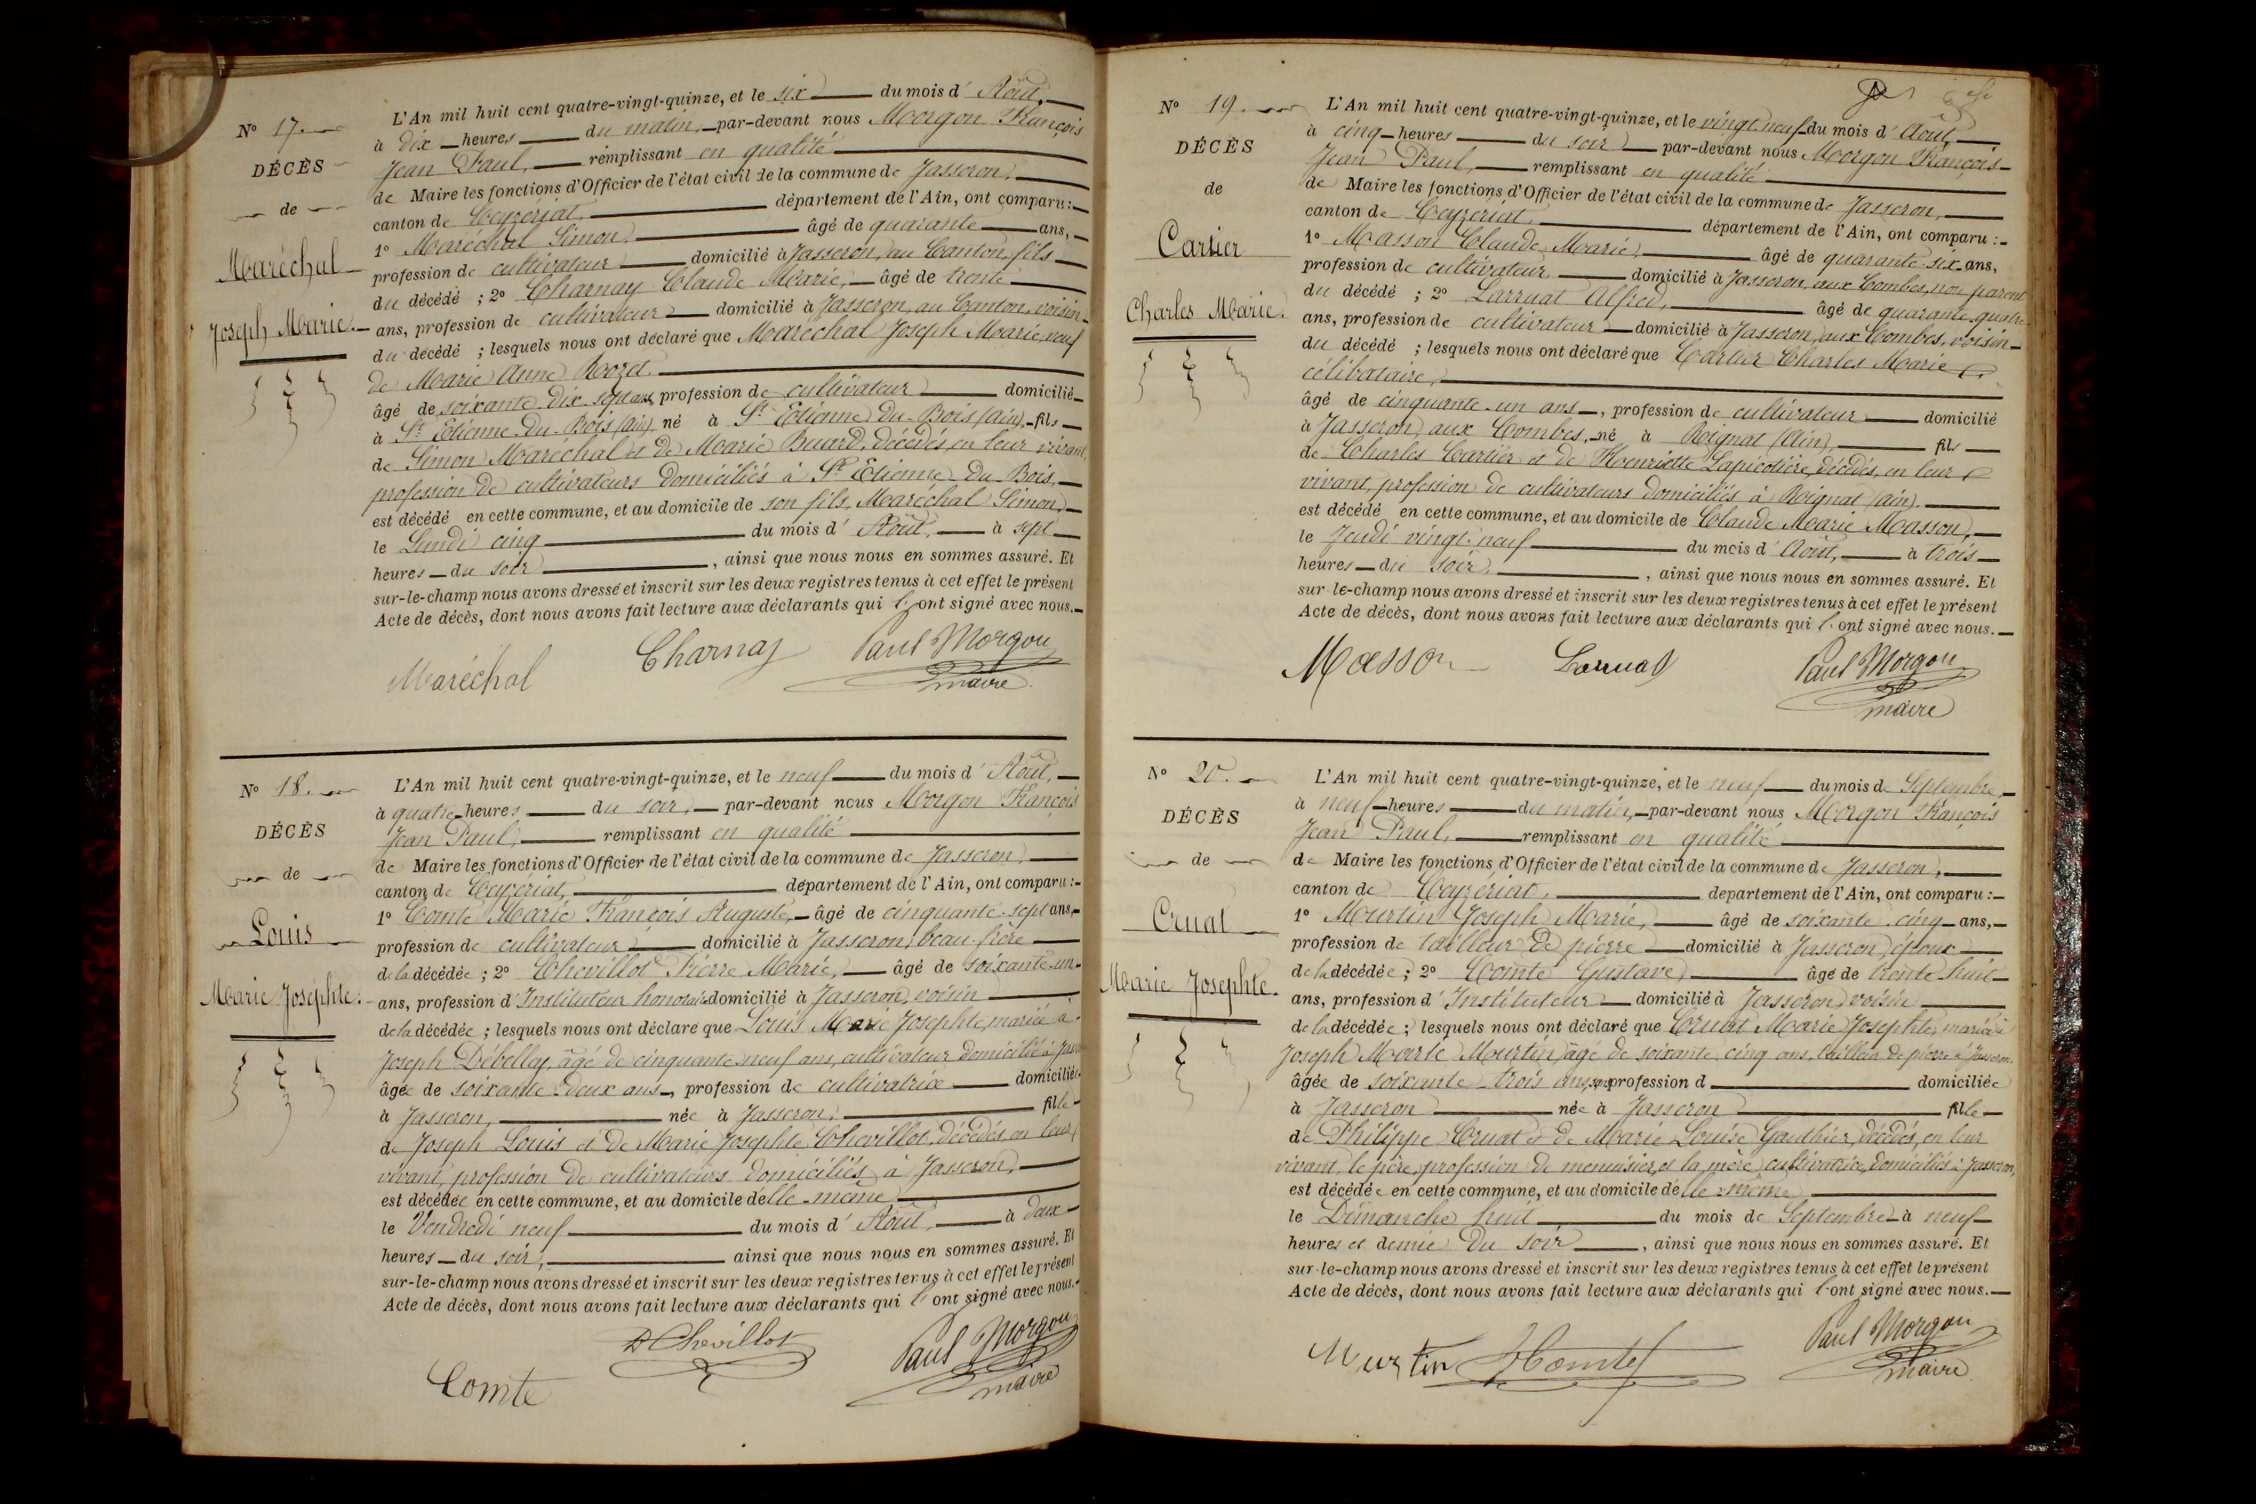 N° 17.
DÉCÈS
de
Maréchal
Joseph Marie.
L'An mil huit cent quatre-vingt-quinze, et le six du mois d' Août,
à dix heures du matin, par-devant nous Morgon François
Jean Paul, remplissant en qualité
de Maire les fonctions d'Officier de l'état civil de la commune de Jasseron,
canton de Ceyzériat, département de l'Ain, ont comparu :
1° Maréchal Simon, âgé de quarante ans,
profession de cultivateur domicilié à Jasseron, au Canton, fils
du décédé ; 2° Charnay Claude Marie, âgé de trente
ans, profession de cultivateur domicilié à Jasseron, au Canton, voisin
du décédé ; lesquels nous ont déclaré que Maréchal Joseph Marie, veuf
de Marie Anne Rozet,
âgé de soixante-dix-sept ans, profession de cultivateur domicilié
à St Etienne-du-Bois (ain), né à St Etienne-du-Bois (ain), fils
de Simon Maréchal et de Marie Buard, décédés, en leur vivant,
profession de cultivateurs domiciliés à St Etienne-du-Bois,
est décédé en cette commune, et au domicile de son fils, Maréchal Simon,
le Lundi cinq du mois d' Août, à sept
heures du soir, ainsi que nous nous en sommes assuré. Et
sur-le-champ nous avons dressé et inscrit sur les deux registres tenus à cet effet le présent
Acte de décès, dont nous avons fait lecture aux déclarants qui l'ont signé avec nous.
Maréchal Charnay Paul Morgon
maire
N° 18.
DÉCÈS
de
Louis
Marie Josephte.
L'An mil huit cent quatre-vingt-quinze, et le neuf du mois d' Août,
à quatre heures du soir, par-devant nous Morgon François
Jean Paul, remplissant en qualité
de Maire les fonctions d'Officier de l'état civil de la commune de Jasseron,
canton de Ceyzériat, département de l'Ain, ont comparu :
1° Comte Marie François Auguste, âgé de cinquante-sept ans,
profession de cultivateur domicilié à Jasseron, beau-frère
de la décédée ; 2° Chevillot Pierre Marie, âgé de soixante-un
ans, profession d'Instituteur honoraire domicilié à Jasseron, voisin
de la décédée ; lesquels nous ont déclaré que Louis Marie Josephte, mariée à
Joseph Débelley, âgé de cinquante-neuf ans, cultivateur domicilié à Jasseron
âgée de soixante-deux ans, profession de cultivatrice domiciliée
à Jasseron, née à Jasseron, fille
de Joseph Louis et de Marie Josephte Chevillot, décédés, en leur
vivant, profession de cultivateurs domiciliés à Jasseron,
est décédée en cette commune, et au domicile d'elle-même
le Vendredi neuf du mois d' Août, à deux
heures du soir, ainsi que nous nous en sommes assuré. Et
sur-le-champ nous avons dressé et inscrit sur les deux registres tenus à cet effet le présent
Acte de décès, dont nous avons fait lecture aux déclarants qui l'ont signé avec nous.
Comte Chevillot Paul Morgon
maire
N° 19.
DÉCÈS
de
Cartier
Charles Marie.
L'An mil huit cent quatre-vingt-quinze, et le vingt-neuf du mois d' Août,
à cinq heures du soir par-devant nous Morgon François
Jean Paul, remplissant en qualité
de Maire les fonctions d'Officier de l'état civil de la commune de Jasseron,
canton de Ceyzériat, département de l'Ain, ont comparu :
1° Masson Claude Marie, âgé de quarante-six ans,
profession de cultivateur domicilié à Jasseron, aux Combes, non parent
du décédé ; 2° Larruat Alfred, âgé de quarante-quatre
ans, profession de cultivateur domicilié à Jasseron, aux Combes, voisin
du décédé ; lesquels nous ont déclaré que Cartier Charles Marie
célibataire,
âgé de cinquante-un ans, profession de cultivateur domicilié
à Jasseron, aux Combes, né à Roignat (Ain), fils
de Charles Cartier et de Henriette Lapicotière, décédés, en leur
vivant, profession de cultivateurs domiciliés à Roignat (ain).
est décédé en cette commune, et au domicile de Claude Marie Masson,
le Jeudi vingt-neuf du mois d' Août, à trois
heures du soir, ainsi que nous nous en sommes assuré. Et
sur-le-champ nous avons dressé et inscrit sur les deux registres tenus à cet effet le présent
Acte de décès, dont nous avons fait lecture aux déclarants qui l'ont signé avec nous.
Masson Larruat Paul Morgon
maire
N° 20.
DÉCÈS
de
Cruat
Marie Josephte.
L'An mil huit cent quatre-vingt-quinze, et le neuf du mois de Septembre,
à neuf heures du matin, par-devant nous Morgon François
Jean Paul, remplissant en qualité
de Maire les fonctions d'Officier de l'état civil de la commune de Jasseron,
canton de Ceyzériat, département de l'Ain, ont comparu :
1° Murtin Joseph Marie, âgé de soixante-cinq ans,
profession de tailleur de pierre domicilié à Jasseron, époux
de la décédée ; 2° Comte Gustave, âgé de trente-huit
ans, profession d'Instituteur domicilié à Jasseron, voisin
de la décédée ; lesquels nous ont déclaré que Cruat Marie Josephte, mariée à
Joseph Marie Murtin, âgé de soixante-cinq ans, tailleur de pierre à Jasseron
âgée de soixante-trois ans, sans profession d domiciliée
à Jasseron née à Jasseron fille
de Philippe Cruat et de Marie Louise Gauthier, décédés, en leur
vivant, le père, profession de menuisier, et la mère, cultivatrice, domiciliés à Jasseron,
est décédée en cette commune, et au domicile d'elle-même
le Dimanche huit du mois de Septembre à neuf
heures et demie du soir, ainsi que nous nous en sommes assuré. Et
sur-le-champ nous avons dressé et inscrit sur les deux registres tenus à cet effet le présent
Acte de décès, dont nous avons fait lecture aux déclarants qui l'ont signé avec nous.
Murtin Comte Paul Morgon
maire